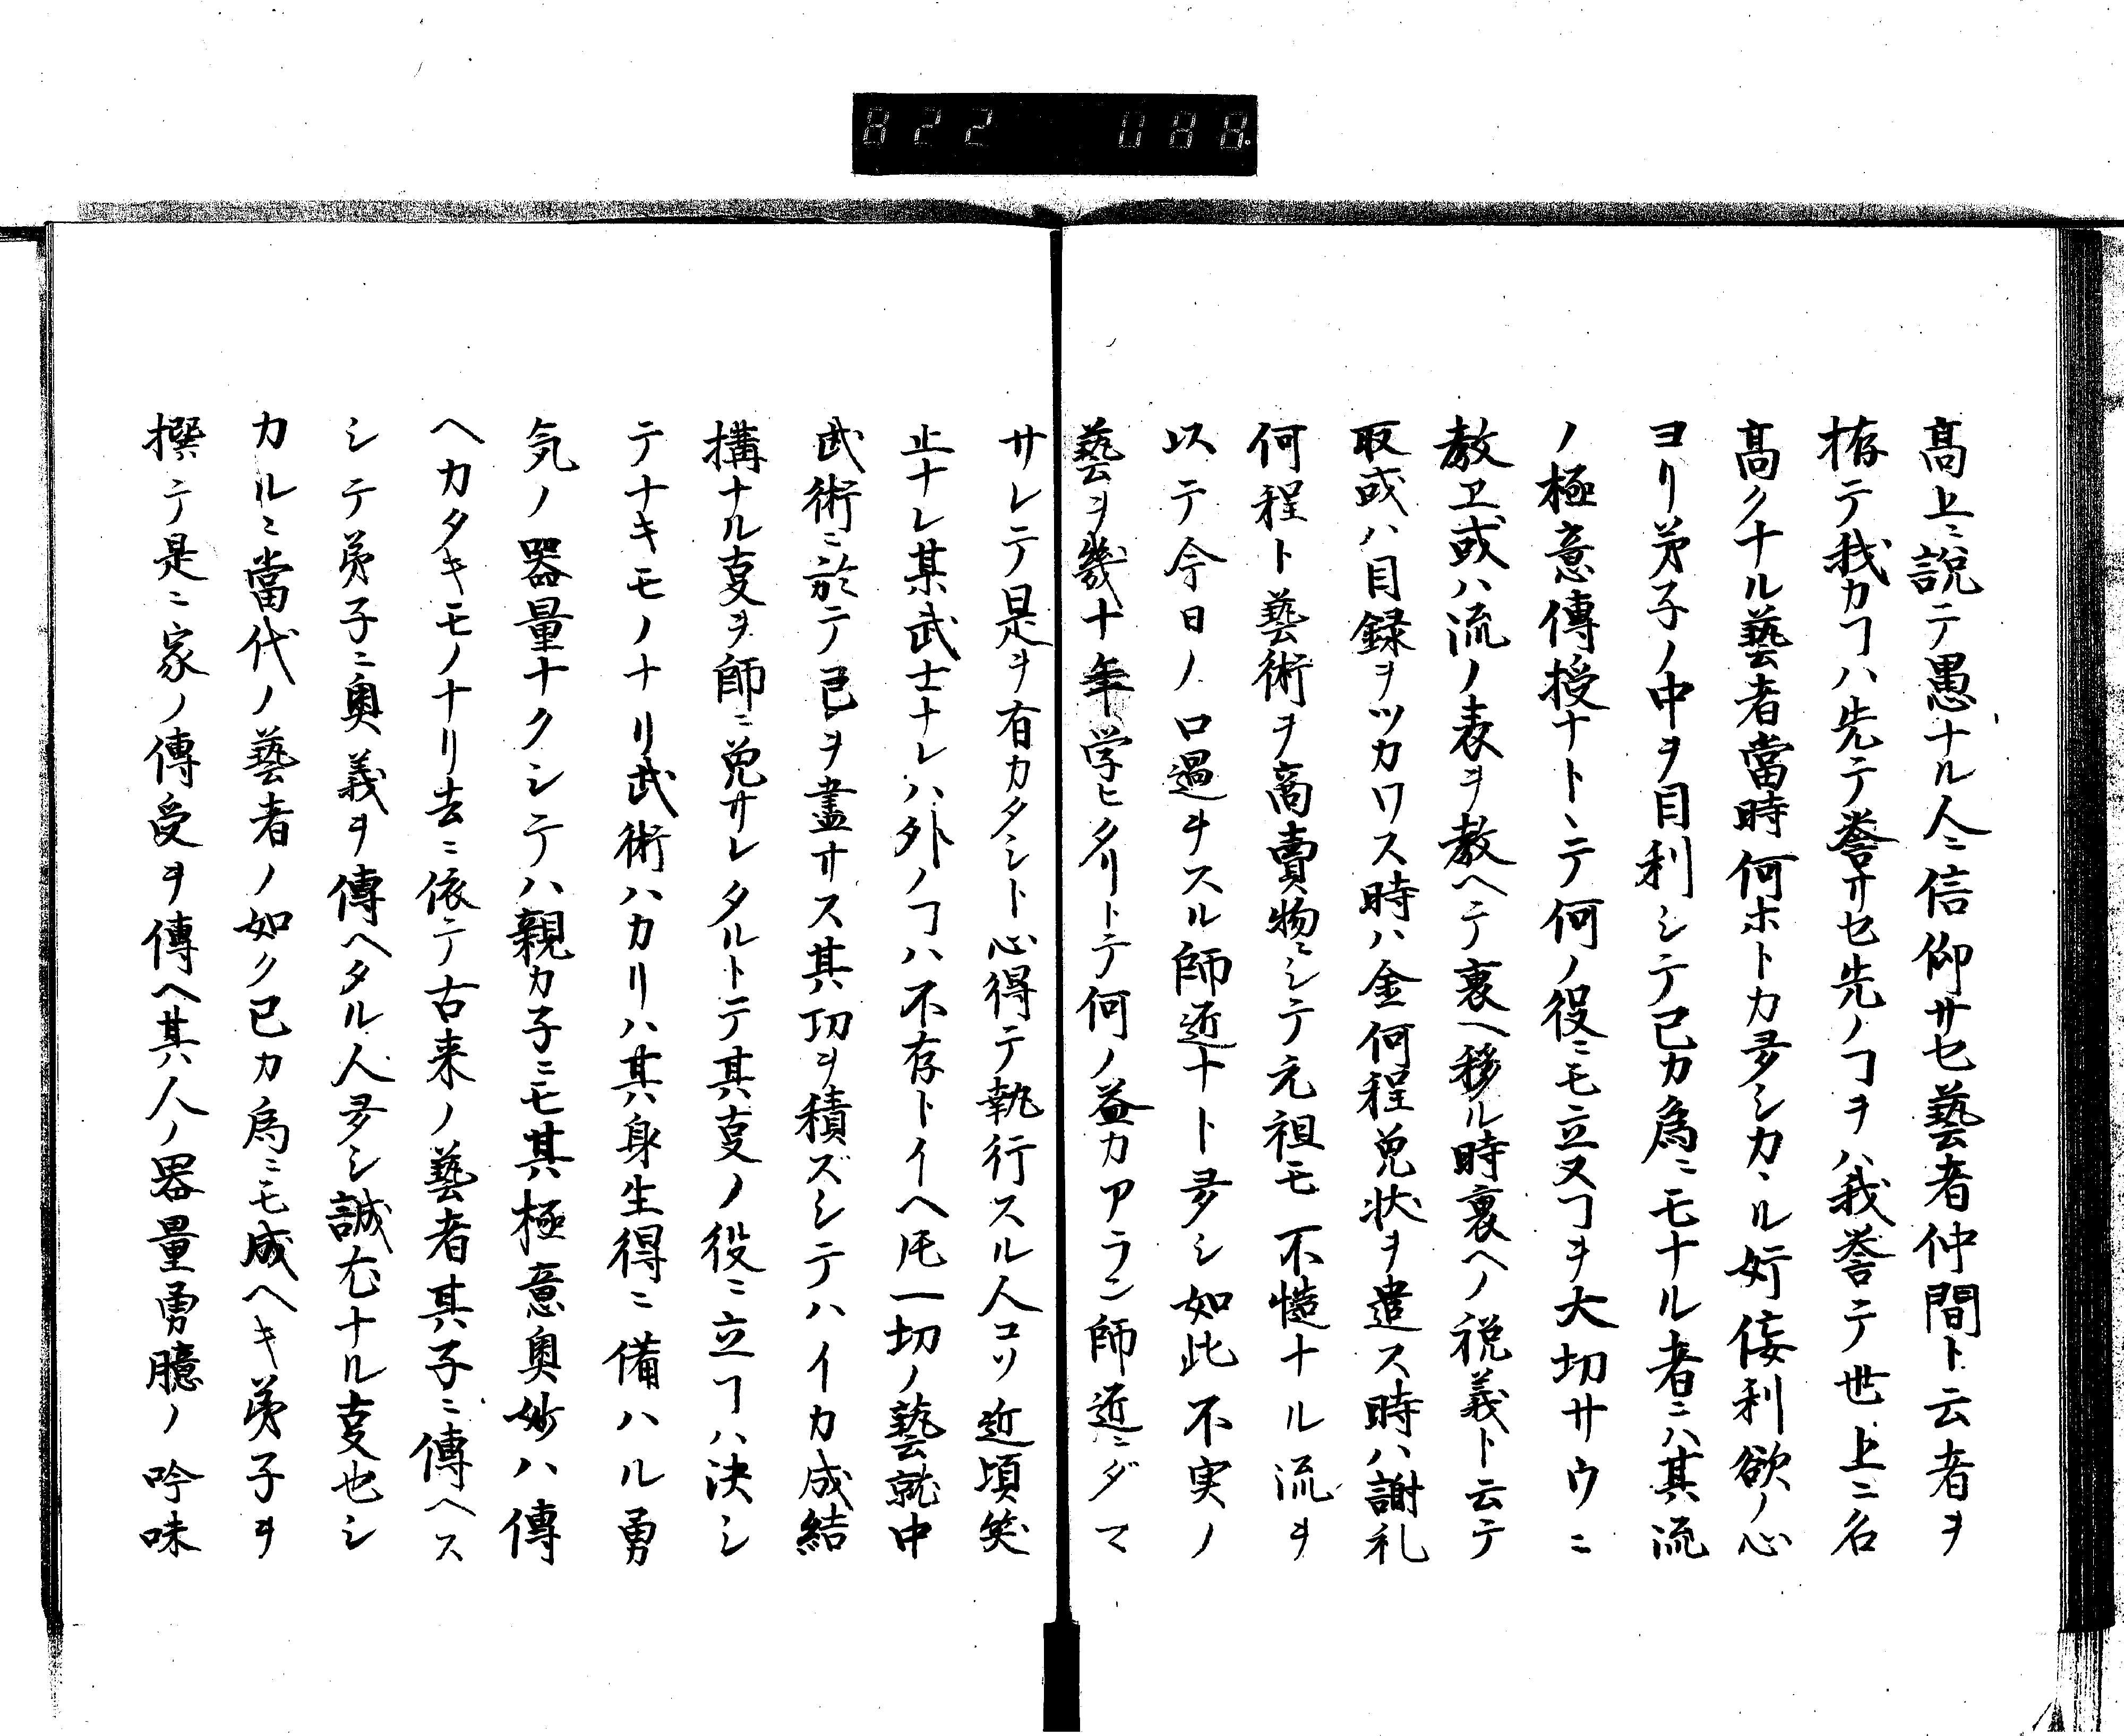 822 088
高上ニ説テ愚ナル人ニ信仰サセ藝者仲間ト云者ヲ
拵テ我カヿハ先テ誉サセ先ノヿヲハ我誉テ世上ニ名
高クナル藝者當時何ホトカ多シカヽル奸侫利欲ノ心
ヨリ弟子ノ中ヲ目利シテ己カ為ニモナル者ニハ其流
ノ極意傳授ナトヽテ何ノ役ニモ立又ヿヲ大切サウニ
教ヱ或ハ流ノ表ヲ教ヘテ裏ヘ移ル時裏ヘノ祝義ト云テ
取或ハ目録ヲツカワス時ハ金何程免状ヲ遣ス時ハ謝礼
何程ト藝術ヲ商賣物ニシテ元祖モ不慥ナル流ヲ
以テ今日ノ口過ヲスル師近ナト多シ如此不実ノ
藝ヲ幾十年学ヒタリトテ何ノ益カアラン師近ニダマ
サレテ是ヲ有カタシト心得テ執行スル人コソ近頃笑
止ナレ某武士ナレハ外ノヿハ不存トイヘ𪜈一切ノ藝就中
武術ニ於テ己ヲ盡サス其功ヲ積ズシテハイカ成結
搆ナル叓ヲ師ニ免サレタルトテ其叓ノ役ニ立ヿハ决シ
テナキモノナリ武術ハカリハ其身生得ニ備ハル勇
気ノ器量ナクシテハ親カ子ニモ其極意奥妙ハ傳
ヘカタキモノナリ去ニ依テ古来ノ藝者其子ニ傳ヘス
シテ弟子ニ奥義ヲ傳ヘタル人多シ誠尤ナル叓也シ
カルニ當代ノ藝者ノ如ク己カ為ニモ成ヘキ弟子ヲ
撰テ是ニ家ノ傳受ヲ傳ヘ其人ノ器量勇臆ノ吟味